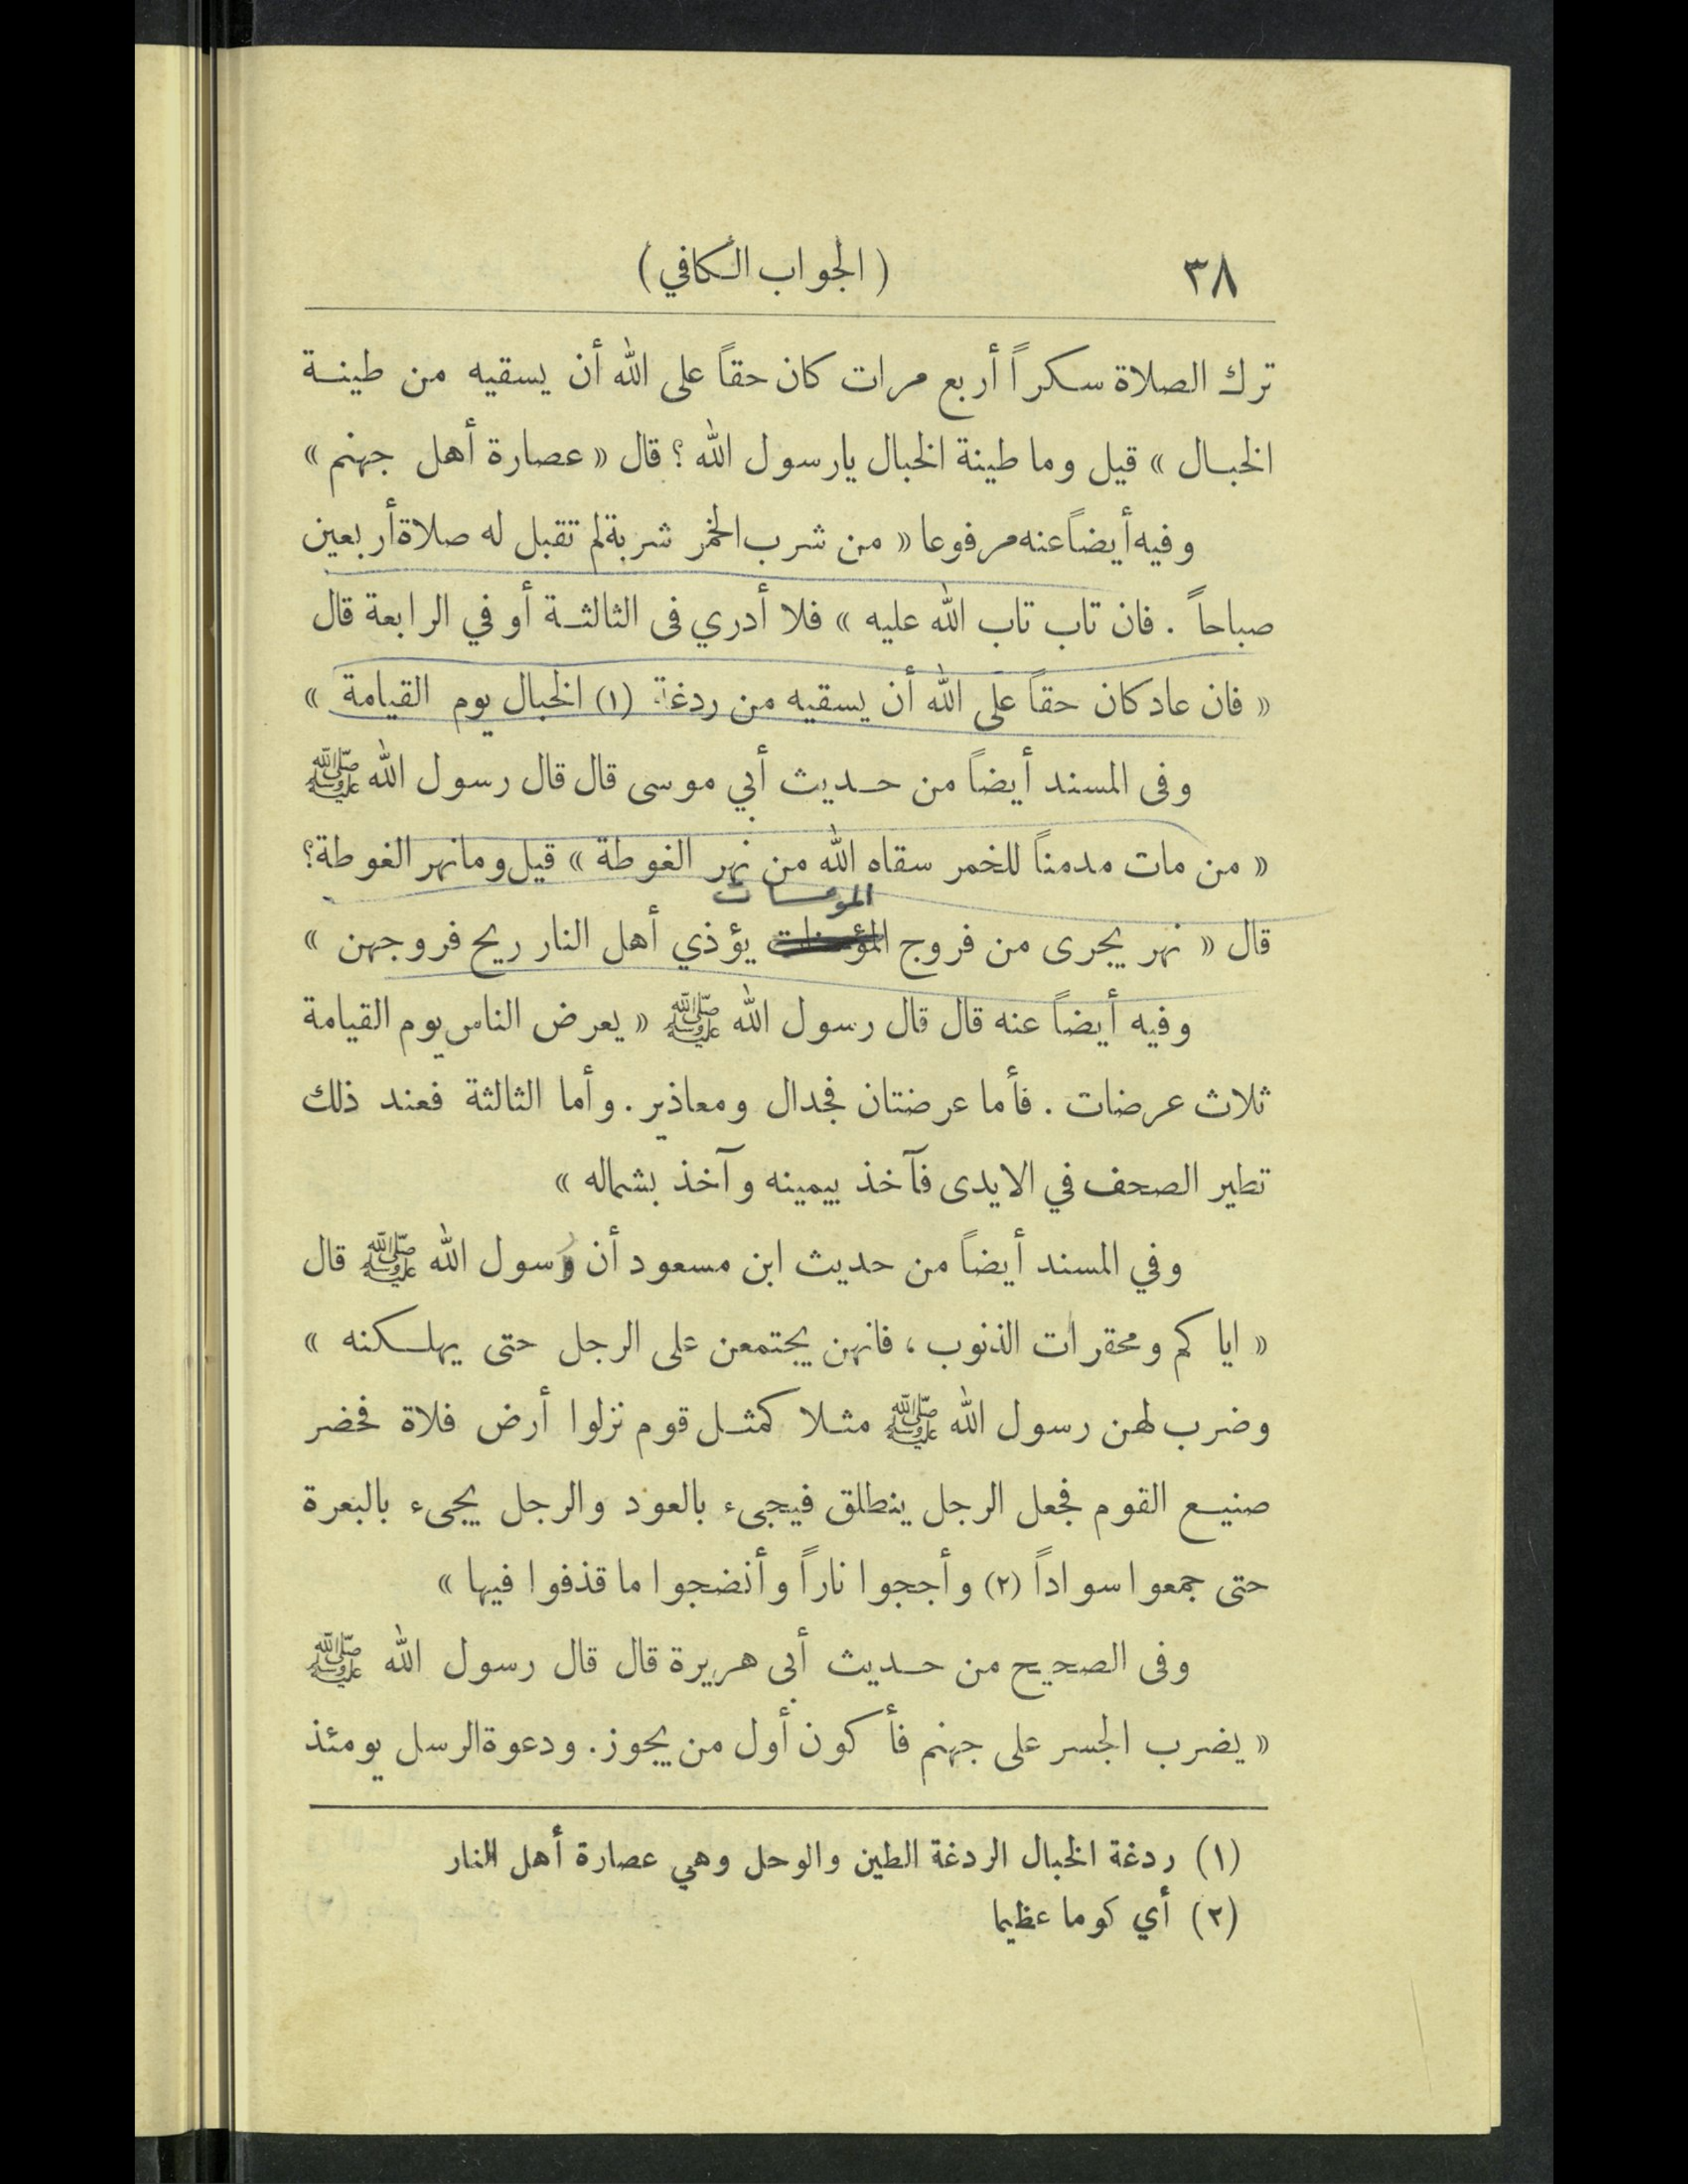 ٣٨
( الجواب الكافي )
ترك الصلاة سكراً أربع مرات كان حقاً على الله أن يسقيه من طينة
الخبال » قيل وما طينة الخبال يارسول الله ؟ قال « عصارة أهل جهنم »
وفيه أيضاً عنه مرفوعا « من شرب الخمر شربة لم تقبل له صلاة أربعين
صباحاً . فان تاب تاب الله عليه » فلا أدري فى الثالثة أو في الرابعة قال
« فان عاد كان حقاً على الله أن يسقيه من ردغة (١) الخبال يوم القيامة »
وفى المسند أيضاً من حديث أبي موسى قال قال رسول الله ﷺ
« من مات مدمناً للخمر سقاه الله من نهر الغوطة » قيل وما نهر الغوطة؟
المومسات
قال « نهر يجرى من فروج يؤذي أهل النار ريح فروجهن »
وفيه أيضاً عنه قال قال رسول الله ﷺ « يعرض الناس يوم القيامة
ثلاث عرضات . فأما عرضتان فجدال ومعاذير . وأما الثالثة فعند ذلك
تطير الصحف في الايدى فآخذ بيمينه وآخذ بشماله »
وفي المسند أيضاً من حديث ابن مسعود أن رسول الله ﷺ قال
« اياكم ومحقرات الذنوب ، فانهن يجتمعن على الرجل حتى يهلكنه »
وضرب لهن رسول الله ﷺ مثلا كمثل قوم نزلوا أرض فلاة فحضر
صنيع القوم فجعل الرجل ينطلق فيجىء بالعود والرجل يجىء بالبعرة
حتى جمعوا سواداً (٢) وأججوا ناراً وأنضجوا ما قذفوا فيها »
وفى الصحيح من حديث أبى هريرة قال قال رسول الله ﷺ
« يضرب الجسر على جهنم فأكون أول من يجوز . ودعوة الرسل يومئذ
(١) ردغة الخبال الردغة الطين والوحل وهي عصارة أهل النار
(٢) أي كوما عظيما